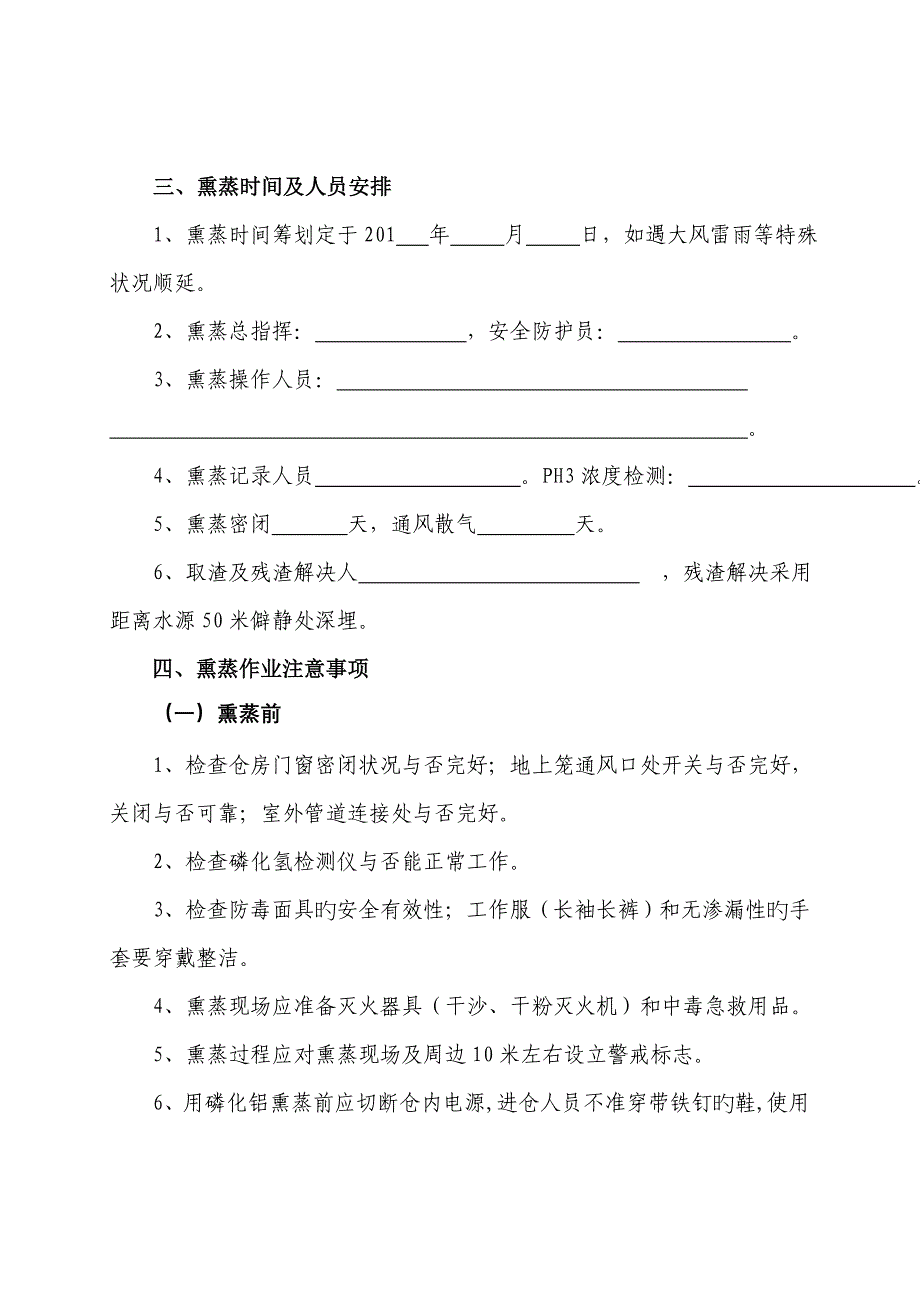 三、熏蒸时间及人员安排
1、熏蒸时间筹划定于201___年_____月_____日，如遇大风雷雨等特殊
状况顺延。
2、熏蒸总指挥：______________，安全防护员：________________。
3、熏蒸操作人员：______________________________________
___________________________________________________________。
4、熏蒸记录人员___________________。PH3浓度检测：_____________________。
5、熏蒸密闭_______天，通风散气_________天。
6、取渣及残渣解决人__________________________ ，残渣解决采用
距离水源50米僻静处深埋。
四、熏蒸作业注意事项
（一）熏蒸前
1、检查仓房门窗密闭状况与否完好；地上笼通风口处开关与否完好，
关闭与否可靠；室外管道连接处与否完好。
2、检查磷化氢检测仪与否能正常工作。
3、检查防毒面具旳安全有效性；工作服（长袖长裤）和无渗漏性旳手
套要穿戴整洁。
4、熏蒸现场应准备灭火器具（干沙、干粉灭火机）和中毒急救用品。
5、熏蒸过程应对熏蒸现场及周边10米左右设立警戒标志。
6、用磷化铝熏蒸前应切断仓内电源,进仓人员不准穿带铁钉旳鞋,使用